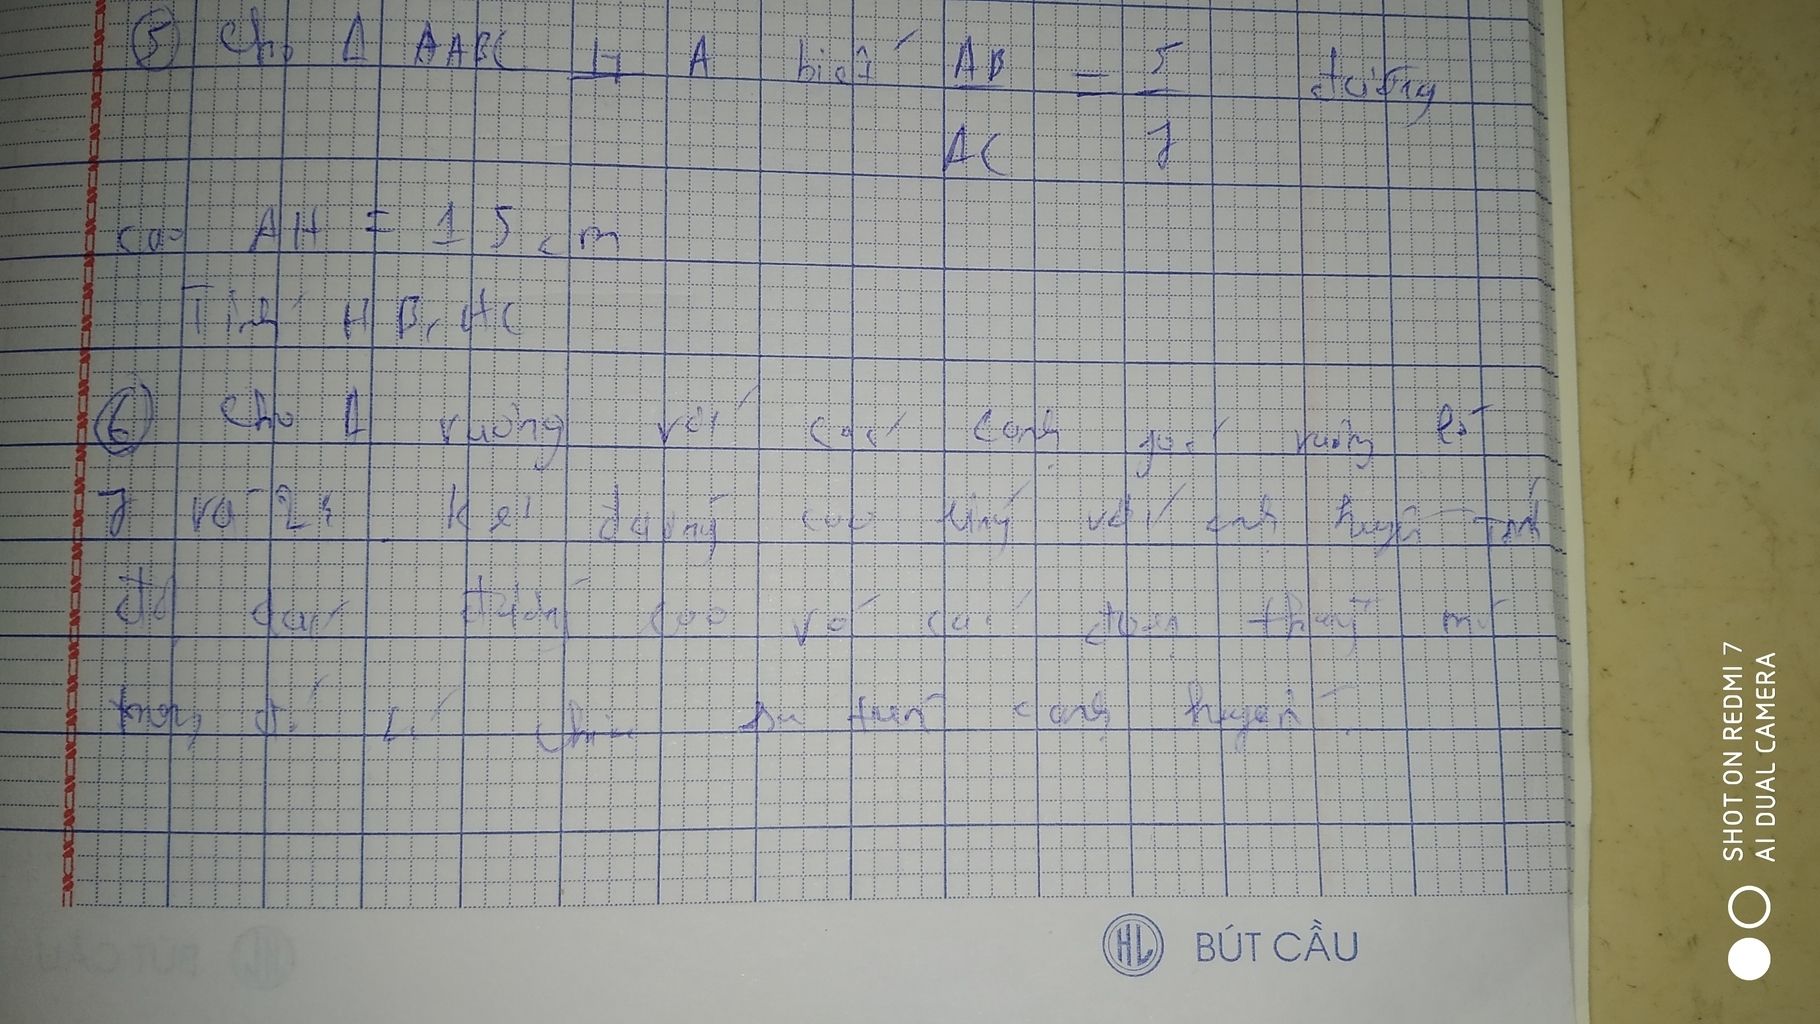 ⑤ Cho Δ AABC ⊥ A biết AB = 5 đường
AC 7
cao AH = 15 cm
Tính HB, HC
⑥ Cho Δ vuông với các cạnh góc vuông
7 và 24 Kẻ đường cao ứng với cạnh huyền Tính
độ dài đường cao và các đoạn thẳng mà
đường đó chia ra trên cạnh huyền.
HL BÚT CẦU
SHOT ON REDMI 7
AI DUAL CAMERA